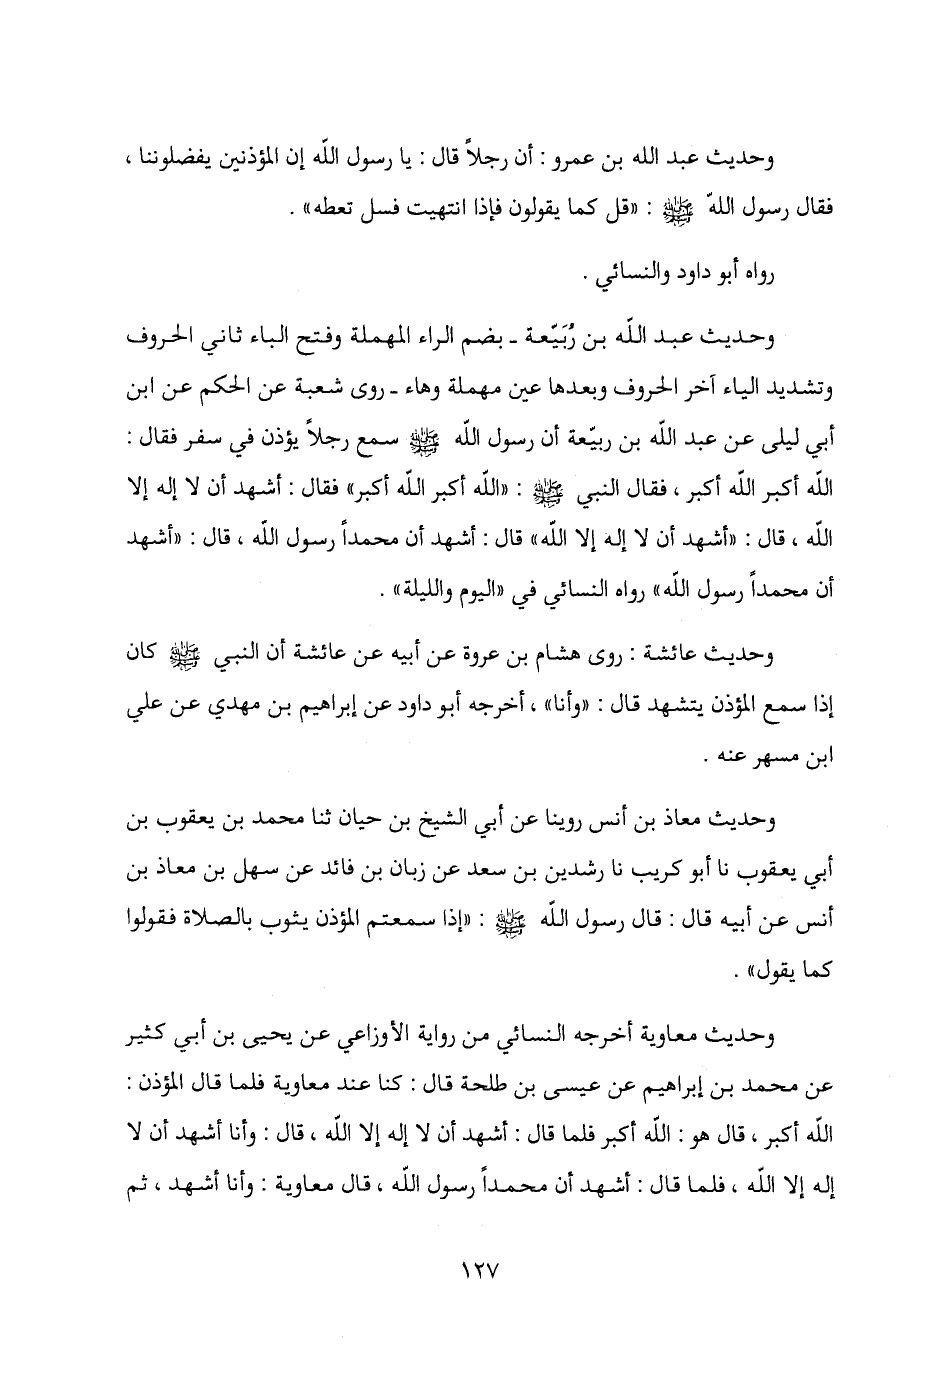 وحديث عبد الله بن عمرو : أن رجلاً قال : يا رسول الله إن المؤذنين يفضلوننا ،
فقال رسول اللهّ ﷺ : «قل كما يقولون فإذا انتهيت فسل تعطه» .
رواه أبو داود والنسائي .
وحديث عبد الله بن رُبَيّعة ـ بضم الراء المهملة وفتح الباء ثاني الحروف
وتشديد الياء آخر الحروف وبعدها عين مهملة وهاء ـ روى شعبة عن الحكم عن ابن
أبي ليلى عن عبد الله بن ربيّعة أن رسول الله ﷺ سمع رجلاً يؤذن في سفر فقال :
الله أكبر الله أكبر ، فقال النبي ﷺ : «الله أكبر الله أكبر» فقال : أشهد أن لا إله إلا
الله ، قال : «أشهد أن لا إله إلا الله» قال : أشهد أن محمداً رسول الله ، قال : «أشهد
أن محمداً رسول الله» رواه النسائي في «اليوم والليلة» .
وحديث عائشة : روى هشام بن عروة عن أبيه عن عائشة أن النبي ﷺ كان
إذا سمع المؤذن يتشهد قال : «وأنا» ، أخرجه أبو داود عن إبراهيم بن مهدي عن علي
ابن مسهر عنه .
وحديث معاذ بن أنس روينا عن أبي الشيخ بن حيان ثنا محمد بن يعقوب بن
أبي يعقوب نا أبو كريب نا رشدين بن سعد عن زبان بن فائد عن سهل بن معاذ بن
أنس عن أبيه قال : قال رسول الله ﷺ : «إذا سمعتم المؤذن يثوب بالصلاة فقولوا
كما يقول» .
وحديث معاوية أخرجه النسائي من رواية الأوزاعي عن يحيى بن أبي كثير
عن محمد بن إبراهيم عن عيسى بن طلحة قال : كنا عند معاوية فلما قال المؤذن :
الله أكبر ، قال هو : الله أكبر فلما قال : أشهد أن لا إله إلا الله ، قال : وأنا أشهد أن لا
إله إلا الله ، فلما قال : أشهد أن محمداً رسول الله ، قال معاوية : وأنا أشهد ، ثم
١٢٧